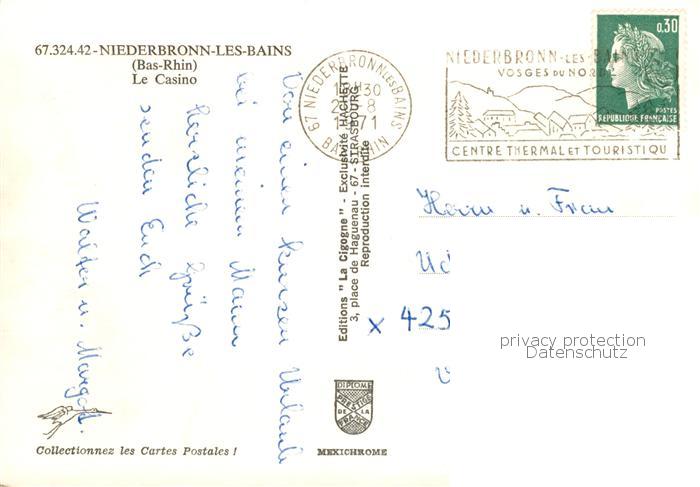 67.324.42-NIEDERBRONN-LES-BAINS
(Bas-Rhin)
Le Casino
Von einem kurzen Urlaub
bei meinem Mann
herzliche Grüße
senden Euch
Walter u. Margot.
Collectionnez les Cartes Postales !
Editions " La Cigogne " - Exclusivité HACHETTE
3, place de Haguenau - 67 - STRASBOURG
Reproduction interdite
DIPLOME
PRESTIGE
DE LA
FRANCE
MEXICHROME
67 NIEDERBRONN LES BAINS
BAS-RHIN
NIEDERBRONN-LES-BA
VOSGES DU NORD
CENTRE THERMAL ET TOURISTIQU
0,30
POSTES
REPUBLIQUE FRANÇAISE
Herrn u. Frau
x 425
privacy protection
Datenschutz